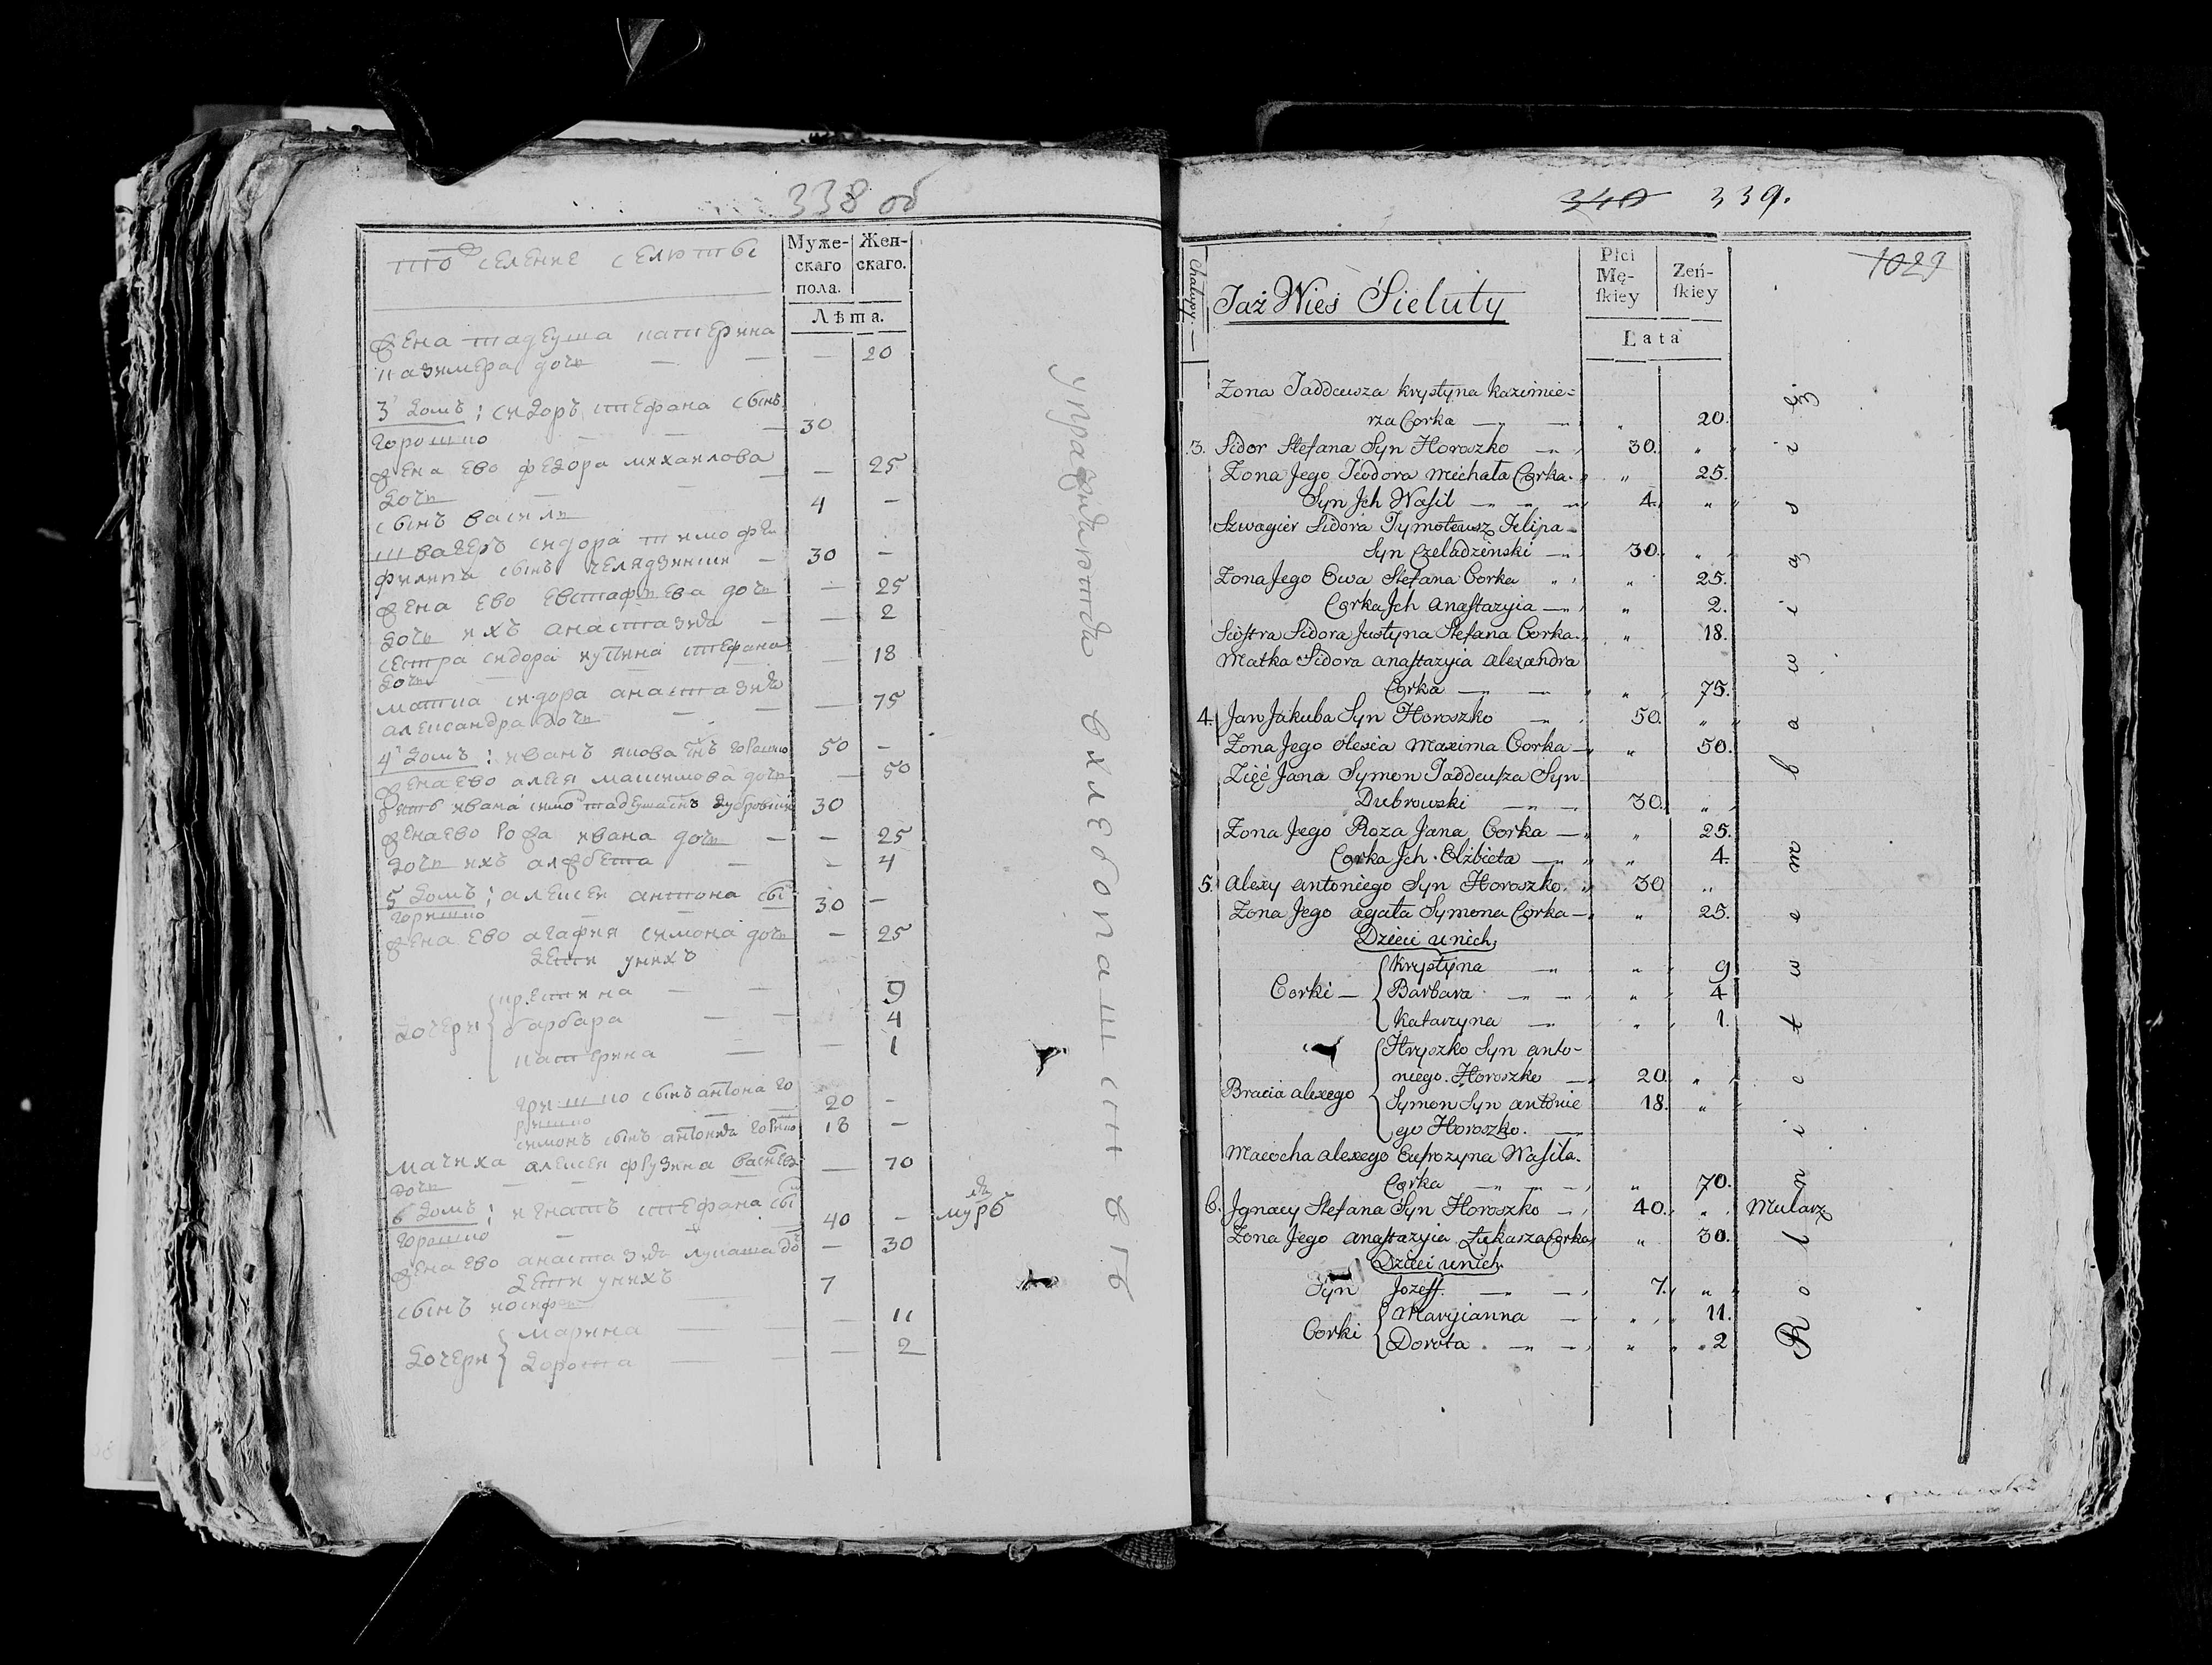 338 об
то селение селюты
Муже-
скаго
пола.
Жен-
скаго.
Лѣта.
жена тадеуша катерина
казимера дочь — — — 20
3 домъ: сидоръ стефана сынъ
горошко — — — 30
жена ево федора михайлова
дочь — — — 25
сынъ василь 4 —
швагеръ сидора тимофей
филипа сынъ челядзински — 30 —
жена ево евстафьева дочь — 25
дочь ихъ анастазия — — 2
сестра сидора юстина стефана
дочь — — 18
матка сидора анастазия
александра дочь — — — 75
4 домъ: иванъ якова сынъ горошко 50 —
жена ево алеся максимова дочь — 50
зять ивана симонъ тадеуша сынъ дубровски 30
жена ево рожа ивана дочь — — 25
дочь ихъ алжбета — — 4
5 домъ; алексей антона сынъ
горошко — — 30 —
жена ево агафия симона дочь — 25
дети унихъ
дочери
крестина — — 9
барбара — — 4
катерина — — 1
гришко сынъ антона го
рошко — — 20 —
симонъ сынъ антония горошко 18 —
мачиха алексея фрузина василева — 70
дочь — — —
6 домъ: игнатъ стефана сынъ
горошко — — 40 —
муръ
жена ево анастазия лукаша дочь — 30
дети унихъ
сынъ иосифъ — 7
дочери
марина — — — 11
дорота — — — 2
упражняются в хлебопашистве
340 339.
1029
Chałupy. —
Taż Wieś Sieluty
Płci
Mę-
skiey
Żeń-
skiey
Lata
Zona Taddeusza Krystyna Kazimie=
rza Corka — — " 20.
3. Sidor Stefana Syn Horoszko — 30. "
Zona Jego Teodora Michała Corka. " 25.
Syn Jch Wasil — " — 4. "
Szwagier Sidora Tymoteusz Felipa —
Syn Czeladzinski — 30. "
Zona Jego Ewa Stefana Corka " " 25.
Corka Jch Anastazyia — " 2.
Siostra Sidora Justyna Stefana Corka. " 18.
Matka Sidora Anastazyia Alexandra
Corka — — " 75.
4. Jan Jakuba Syn Horoszko — 50. "
Zona Jego Olesia Maxima Corka — " 50.
Zięć Jana Symon Taddeusza Syn
Dubrowski — 30. "
Zona Jego Roza Jana Corka — " 25.
Corka Jch. Elżbieta — " 4.
5. Alexy Antoniego Syn Horoszko. " 30 "
Zona Jego Agata Symona Corka — " 25.
Dzieci unich,
Corki —
Krystyna — " 9
Barbara — — " 4
Katarzyna — " 1.
Bracia Alexego
Hryszko Syn Anto-
niego. Horoszko — 20. "
Symon Syn Antonie
go Horoszko. — 18. "
Macocha Alexego Eufrozyna Wasila.
Corka — — — " 70.
6. Jgnacy Stefana Syn Horoszko — 40. " Mularz
Zona Jego Anastazyia Łukasza Corka " 30.
Dzieci unich
Syn Jozeff. — — 7. "
Corki
Maryianna — " 11.
Dorota. — — " 2
Rolnictwem bawią się.